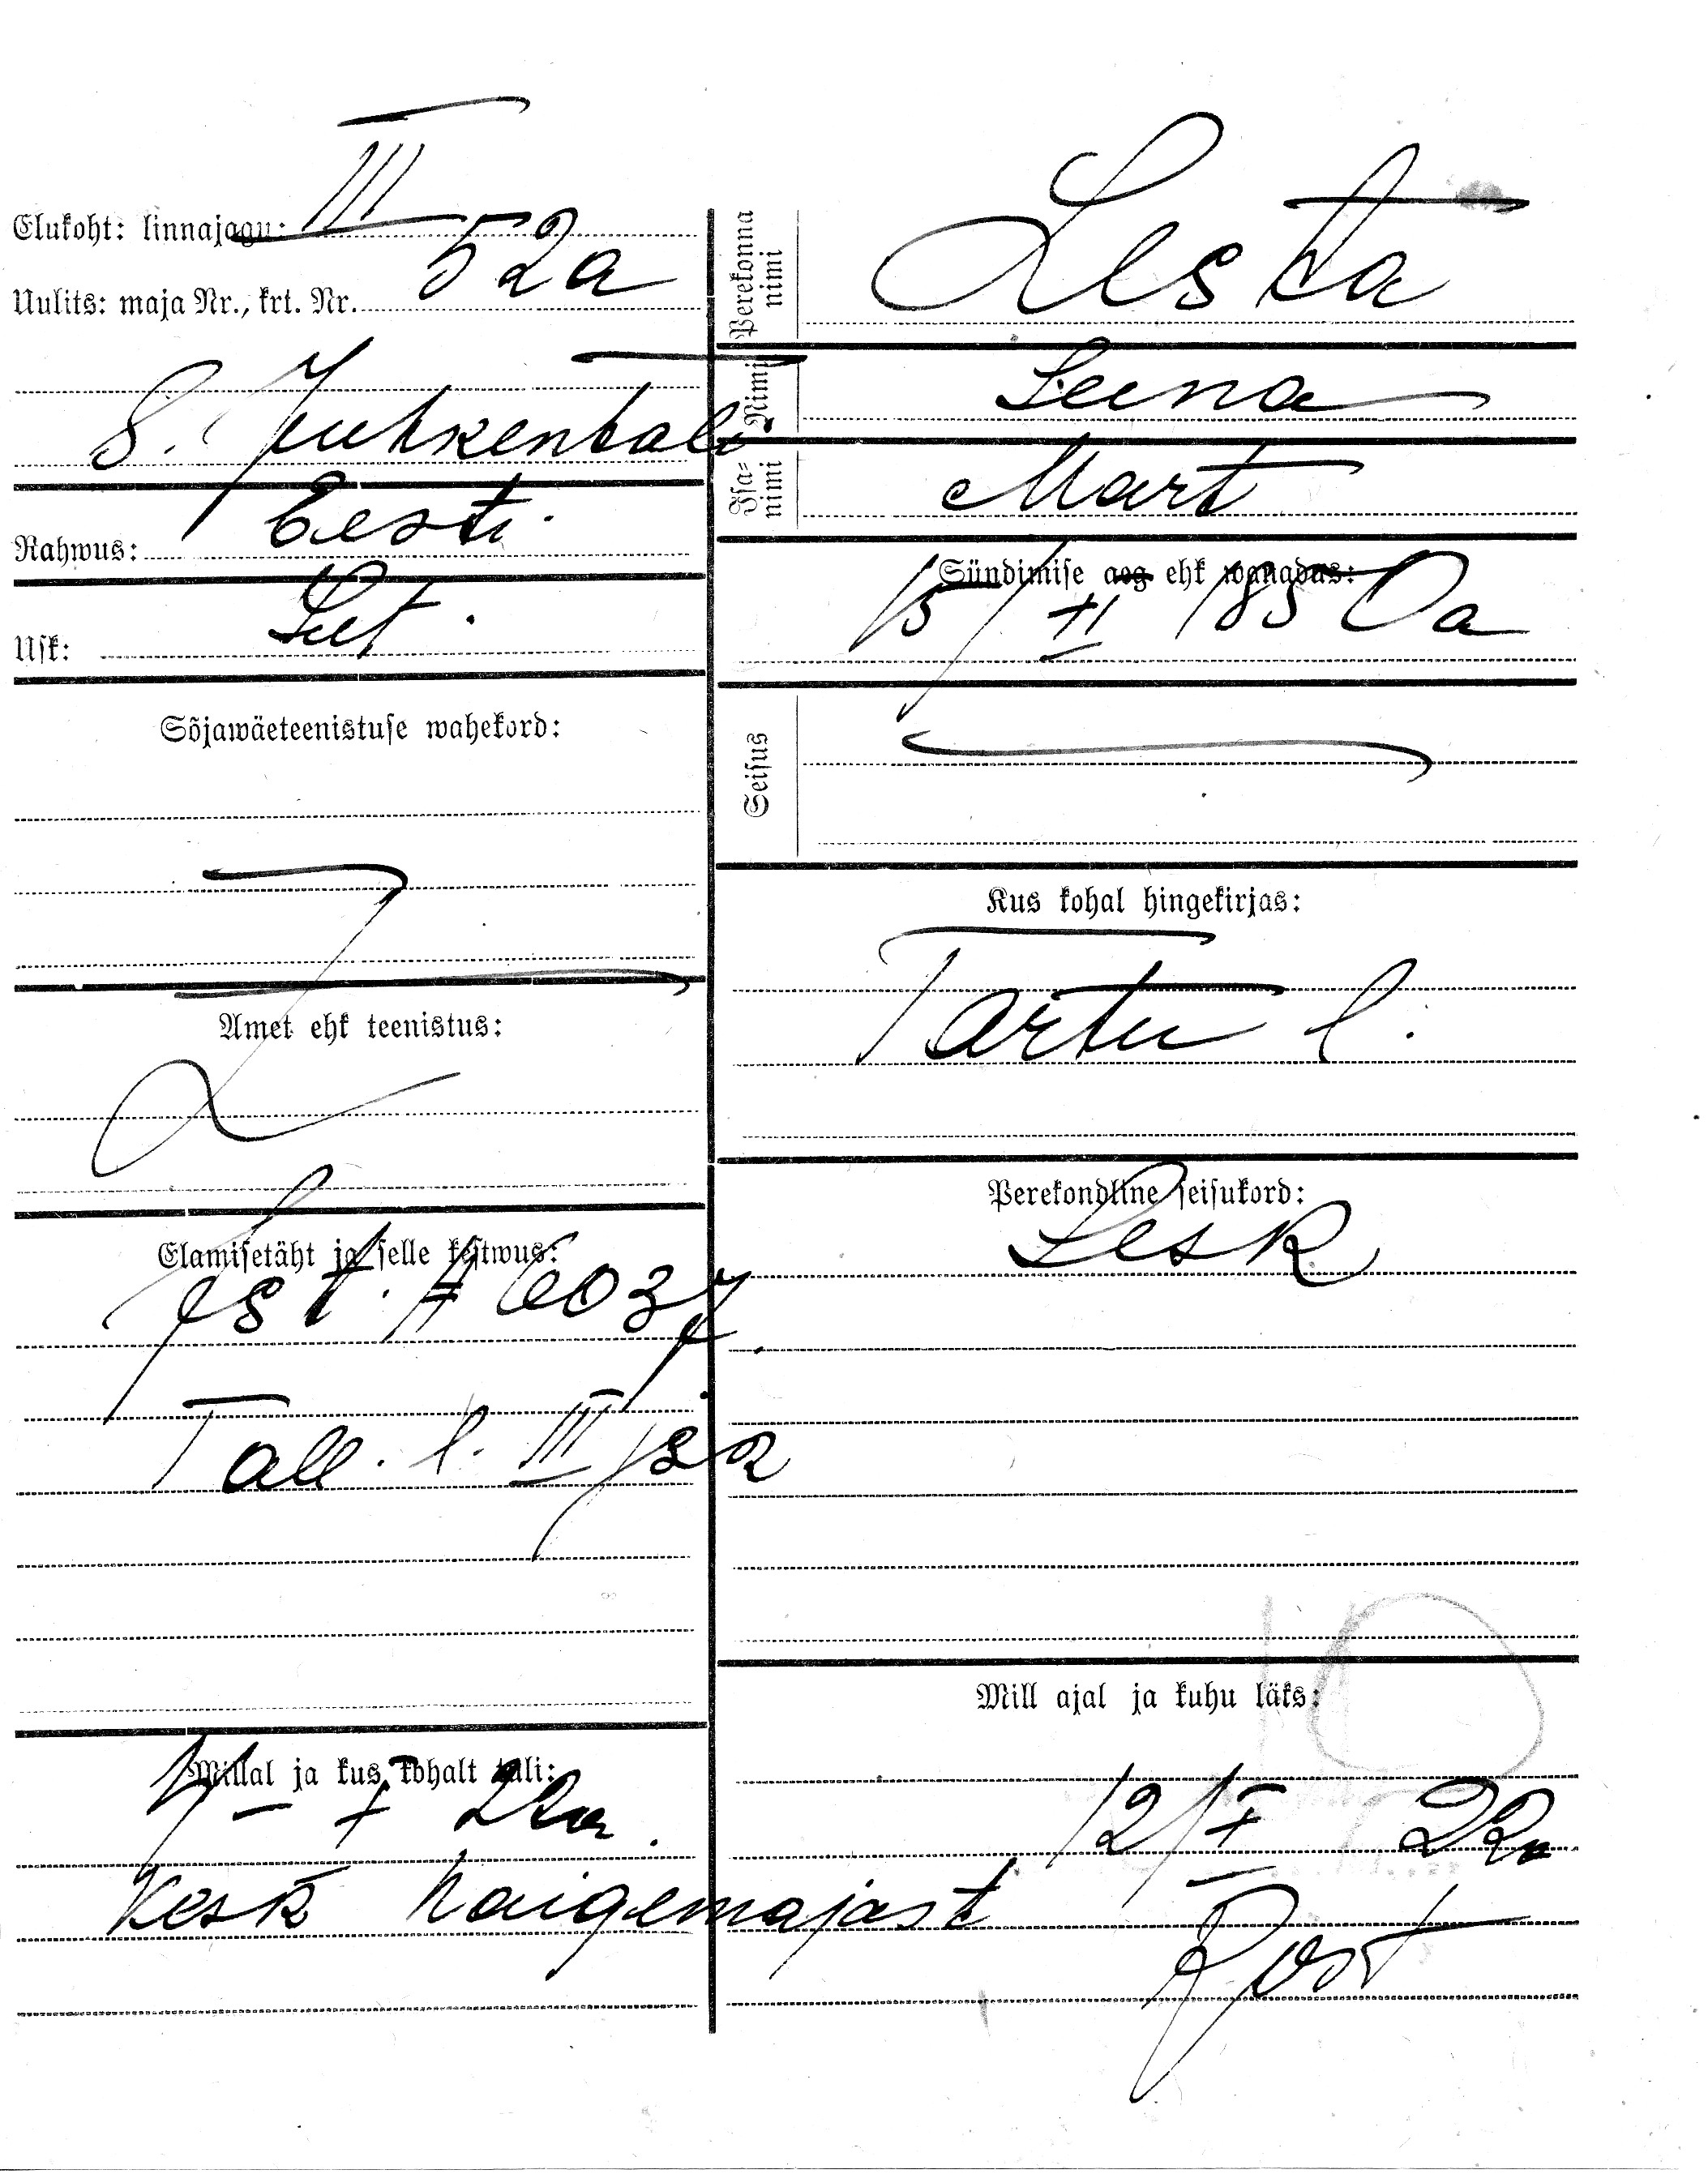 Elukoht: linnajagu: III
Uulits: maja Nr., krt. Nr. 52a
S. Juhkentali
Rahwus: Eesti
Usk: Lut.
Sõjawäeteenistuse wahekord:
Amet ehk teenistus:
Elamisetäht ja selle kestwus:
ist. # 6037.
Tall. l. III jsk
Millal ja kus kohalt tuli:
X 22a.
Kesk haigemajast
Perekonna nimi Lesta
Nimi Leena
Isa-nimi Mart
Sündimise aeg ehk wanadus:
15/XI 1850a
Seisus
Kus kohal hingekirjas:
Tartu l.
Perekondline seisukord:
Lesk
Mill ajal ja kuhu läks:
10
12/X 22a